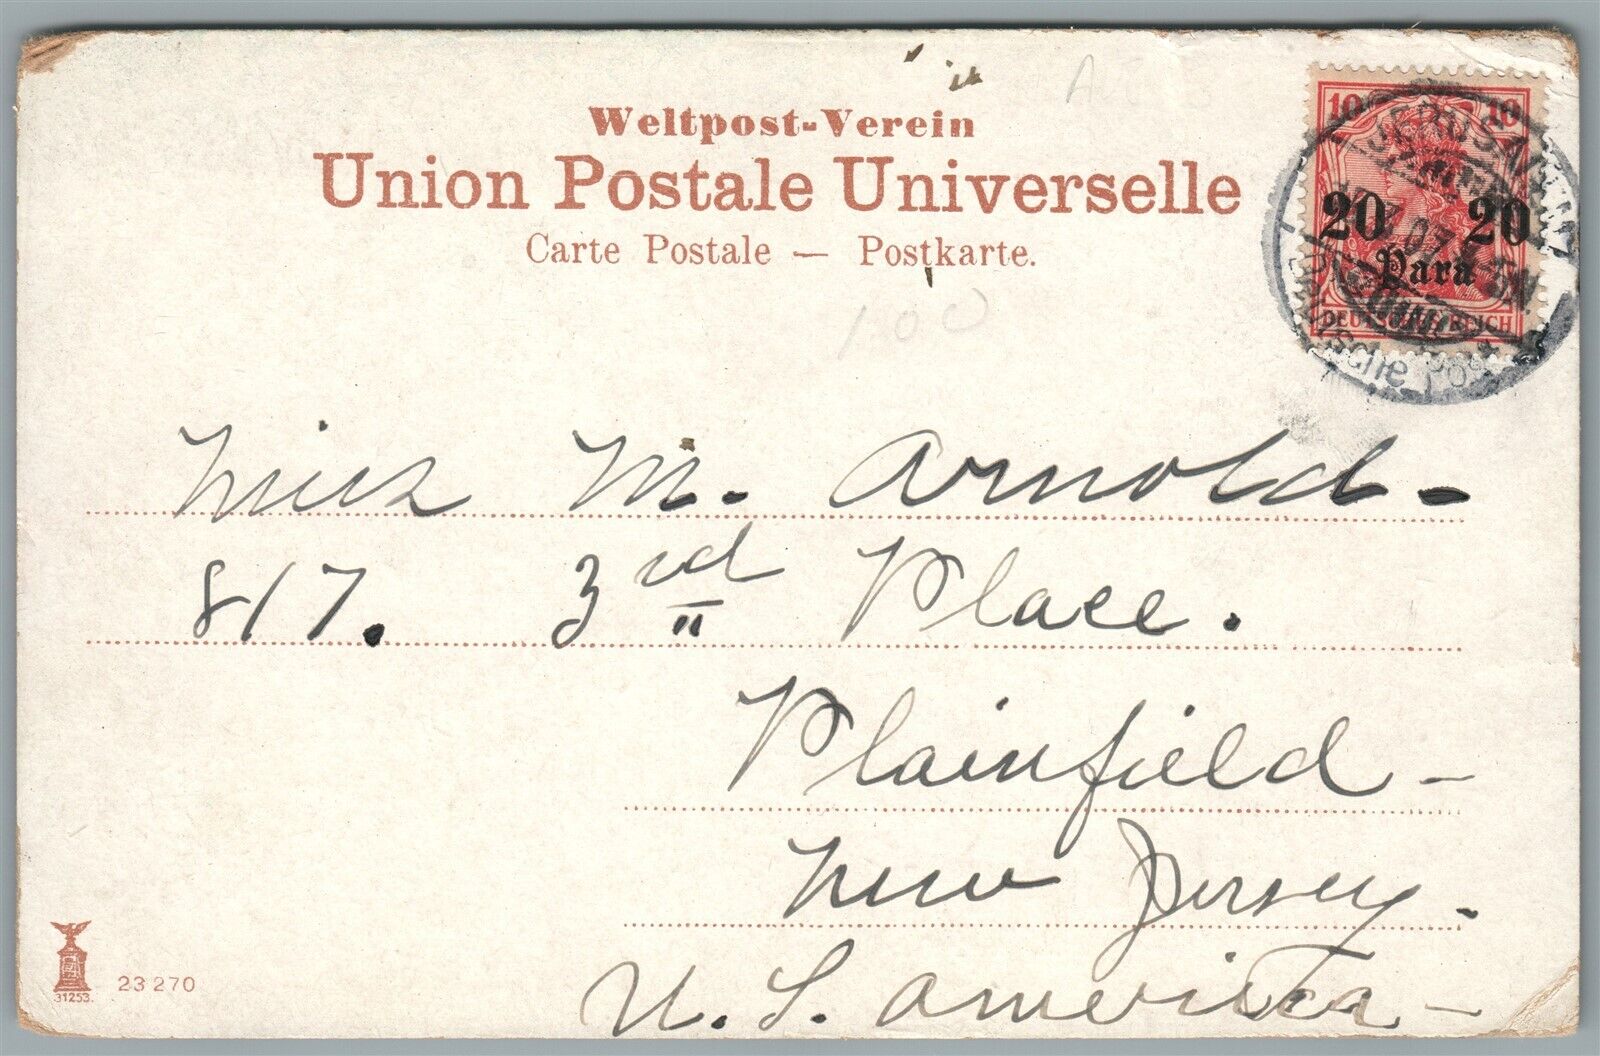 Weltpost-Verein
Union Postale Universelle
Carte Postale — Postkarte.
10 10
20 20
Para
DEUTSCHES REICH
JERUSALEM
Deutsche Post
100
Miss M. Arnold-
817. 3rd Place.
Plainfield-
New Jersey.
U. S. America-
31253.
23 270